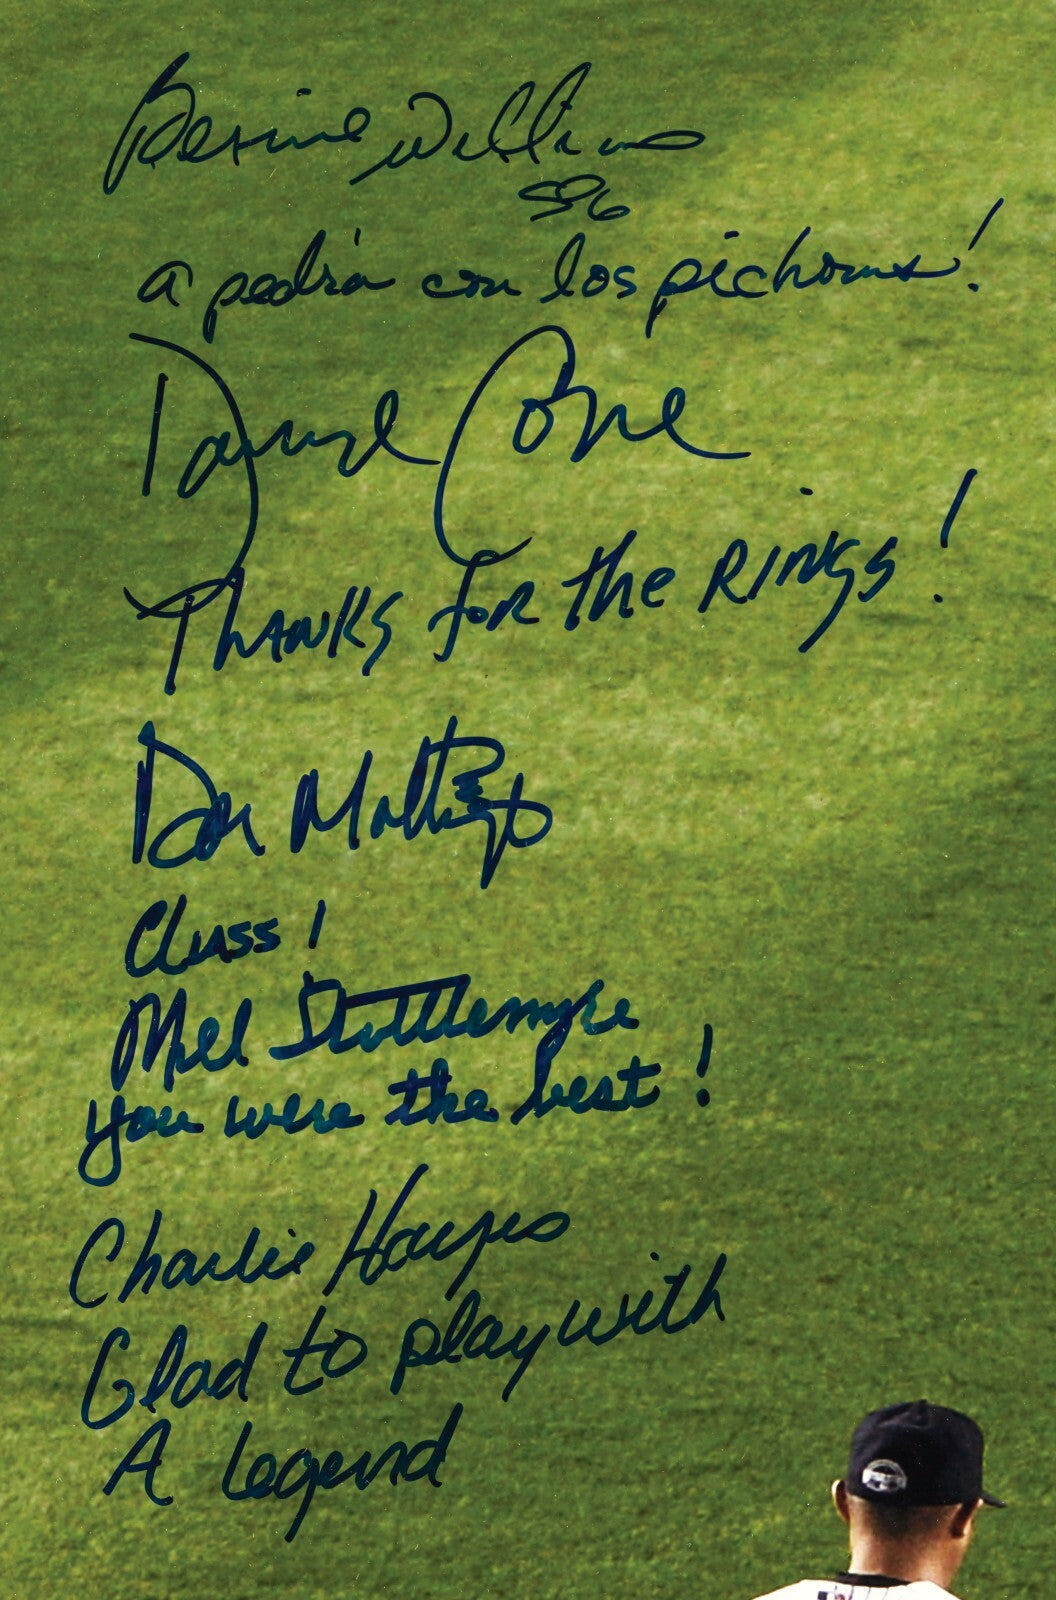 Bernie Williams
S96
a pedra con los pichones!
David Cone
Thanks for the Rings!
Don Mattingly
Class!
Mel Stottlemyre
you were the best!
Charlie Hayes
Glad to play with
A legend